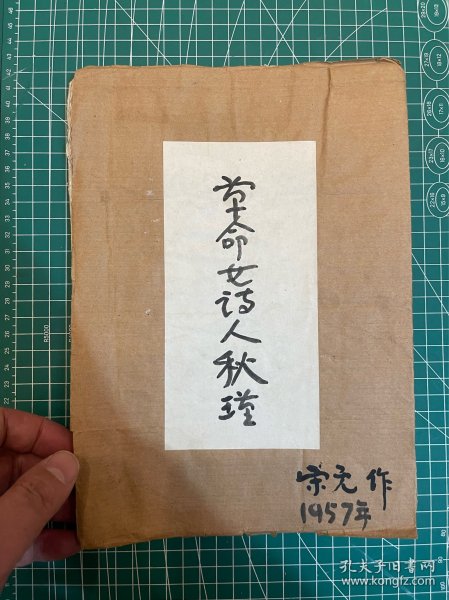 革命女诗人秋瑾
宗元 作
1957年
孔夫子旧书网
www.kongfz.com